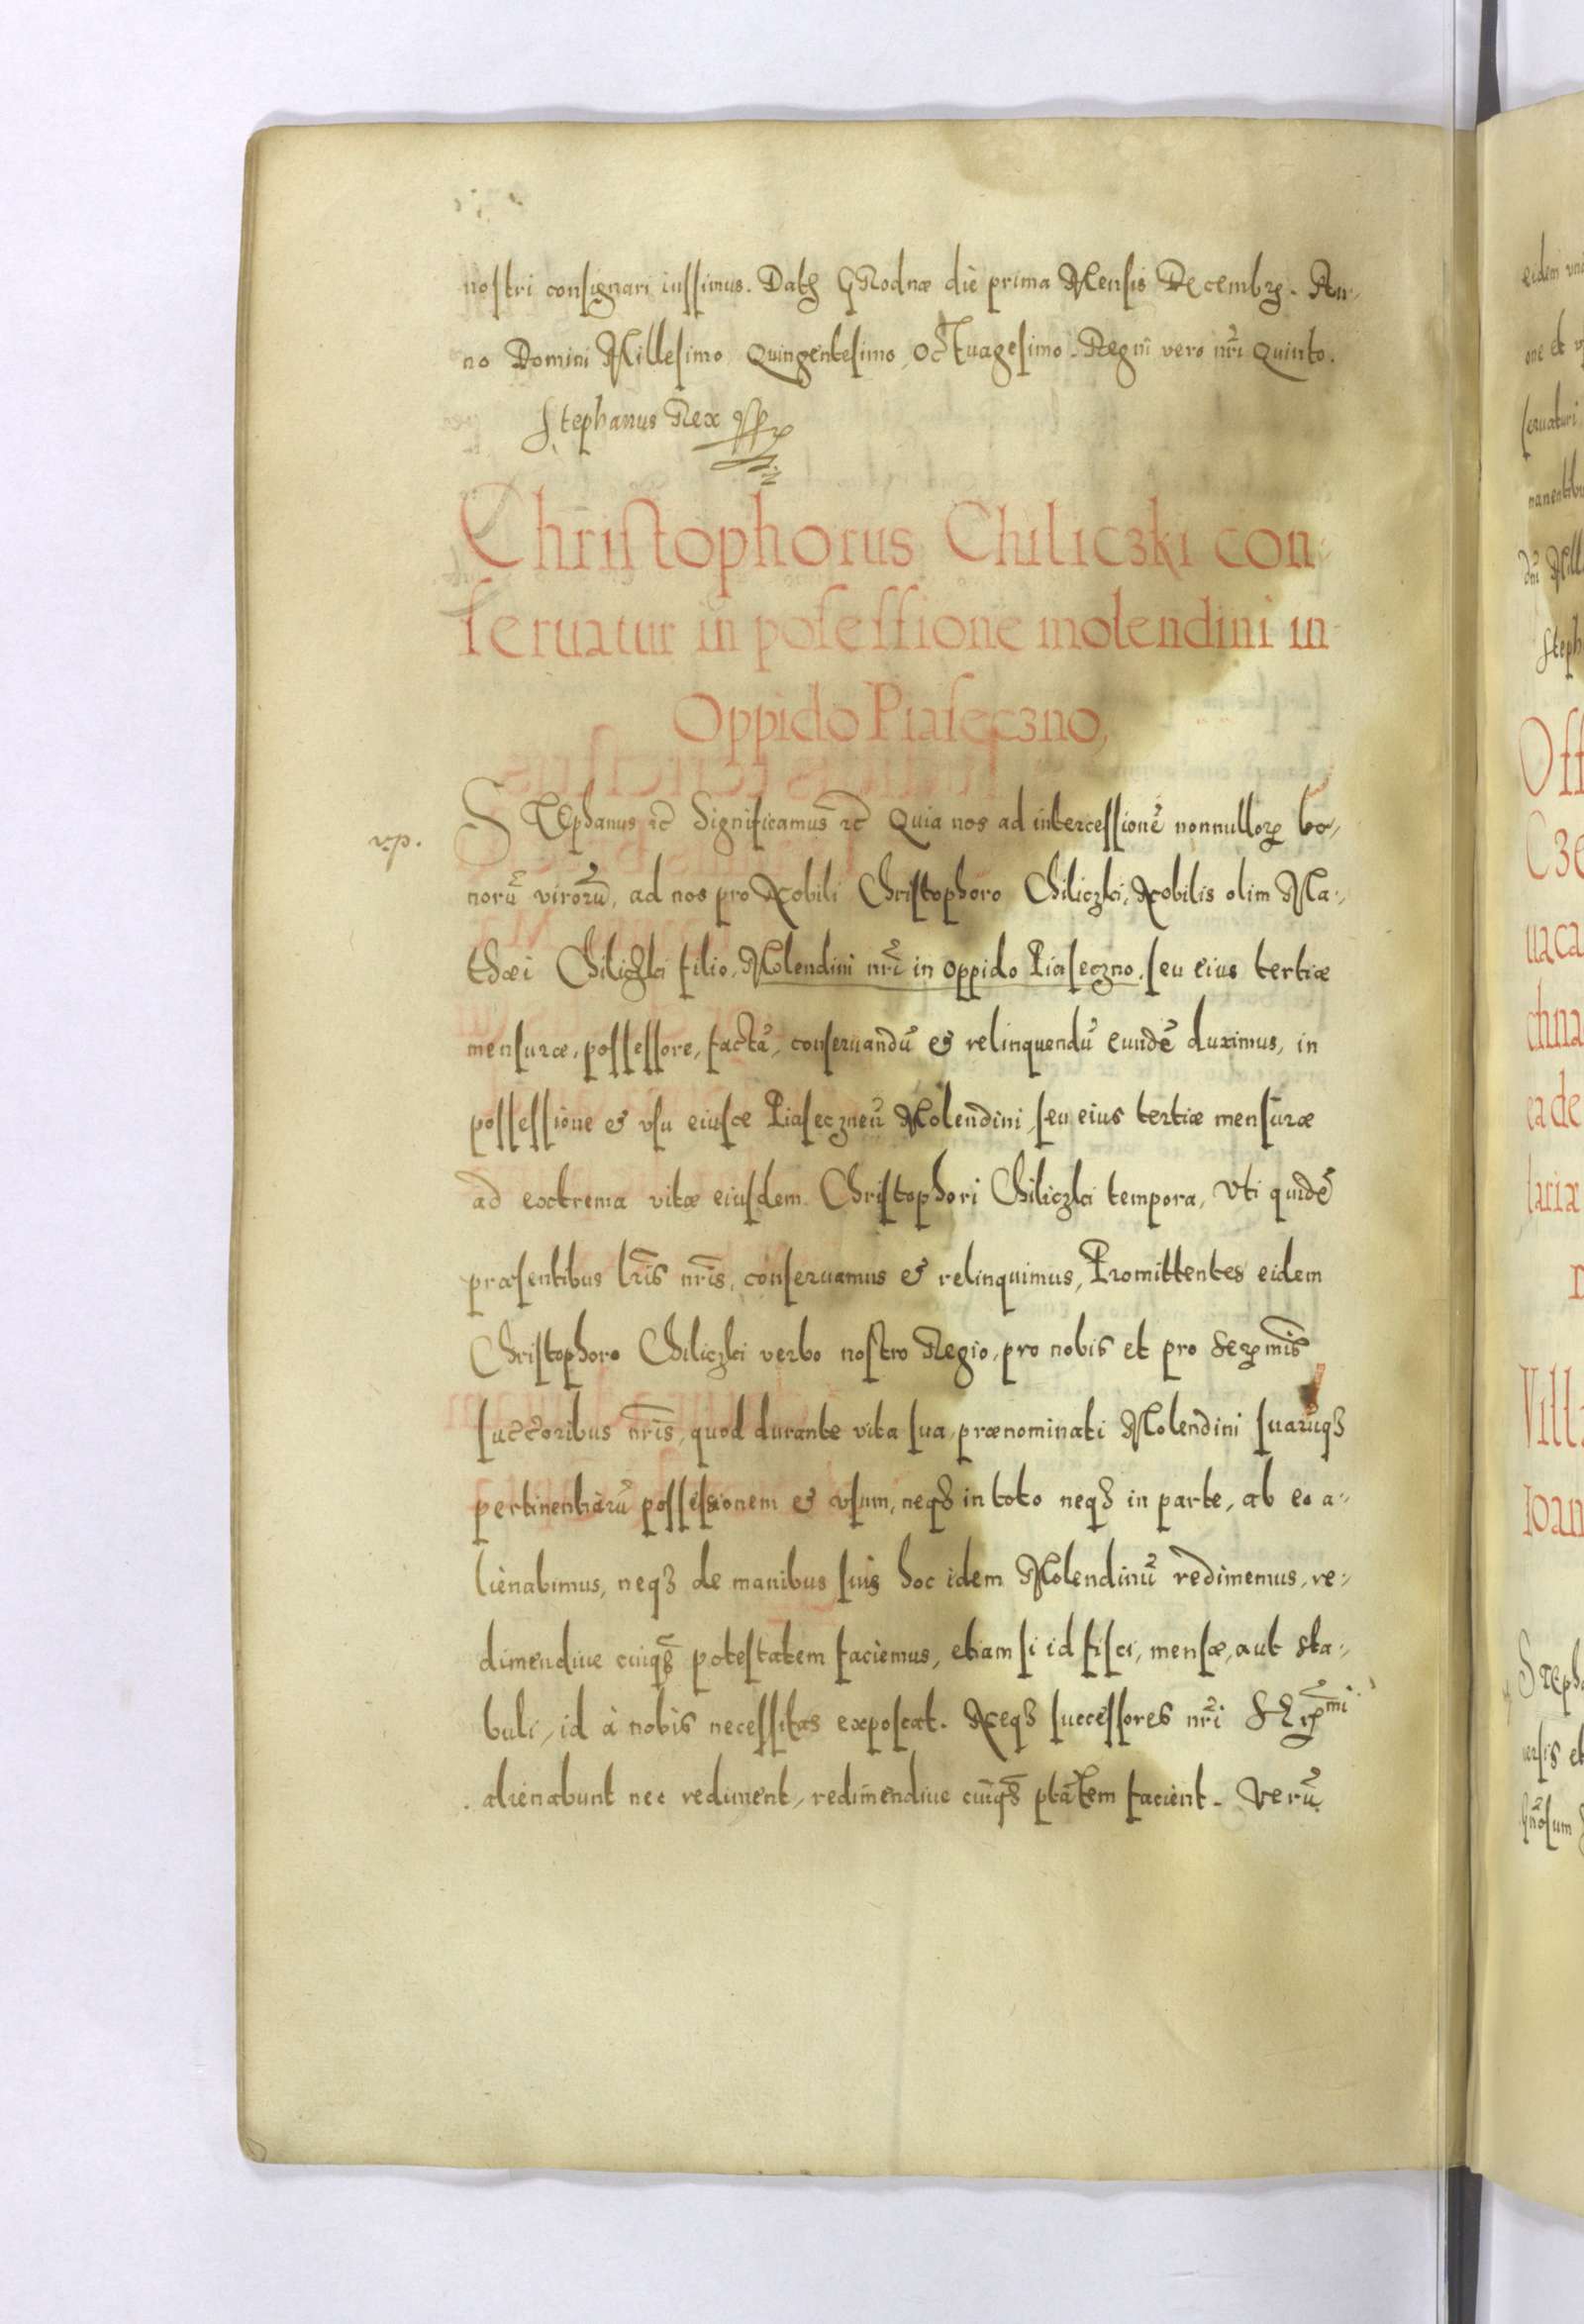 nostri consignari iussimus. Datꝫ GRodnæ die prima Mensis Decembrꝫ. An-
no Domini Millesimo Quingentesimo Octuagesimo. Regni vero nr̃i Quinto.
Stephanus Rex
Christophorus Chiliczki con-
seruatur in posessione molendini in
Oppido Piaseczno,
STEphanus ꝛc̃ Significamus ꝛc̃ Quia nos ad intercessionẽ nonnulloꝝ bo-
norũ virorũ, ad nos pro Nobili Christophoro Chiliczki, Nobilis olim Ma-
thæi Chiliczki filio, Molendini nr̃i in oppido Piaseczno, seu eius tertiæ
mensuræ, possessore, factã, conseruandũ et relinquendũ eundẽ duximus, in
possessione et vsu eiusce Piaseczneñ Molendini, seu eius tertiæ mensuræ
ad extrema vitæ eiusdem Christophori Chiliczki tempora, Vti quidẽ
præsentibus lr̃is nr̃is, conseruamus et relinquimus, Promittentes eidem
Christophoro Chiliczki verbo nostro Regio, pro nobis et pro Serꝫmis
succoribus nr̃is, quod durante vita sua, prænominati Molendini suarũqꝫ
pertinentiarũ possessionem et vsum, neqꝫ in toto neqꝫ in parte, ab eo a-
lienabimus, neqꝫ de manibus suis hoc idem Molendinũ redimemus, re-
dimendiue cuiqꝫ̃ potestatem faciemus, etiam si id fisci, mensæ, aut sta-
buli, id à nobis necessitas exposcat. Neqꝫ successores nr̃i SERꝫmi
alienabunt nec rediment, redimendiue cuiqꝫ̃ ptãtem facient. Verũ
v.p.